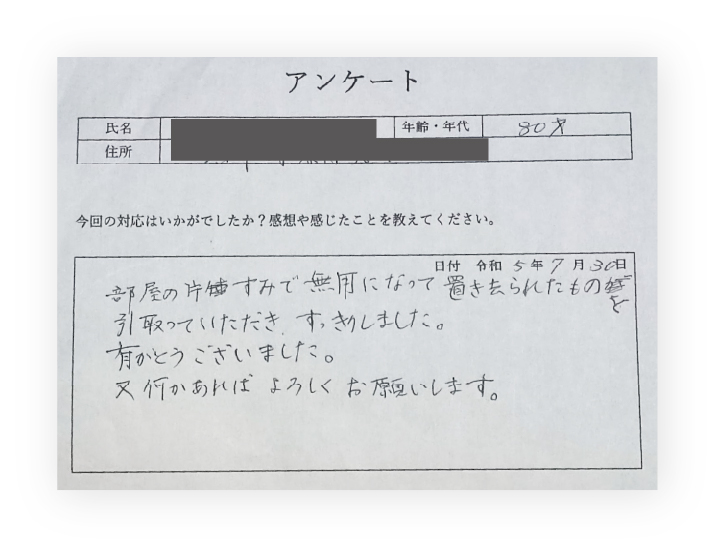 アンケート
氏名
年齢・年代 80才
住所
今回の対応はいかがでしたか？感想や感じたことを教えてください。
日付 令和 5年 7月 30日
部屋の片すみで無用になって置き去られたものを
引取っていただき、すっきりしました。
有がとうございました。
又何かあれば よろしく お願いします。